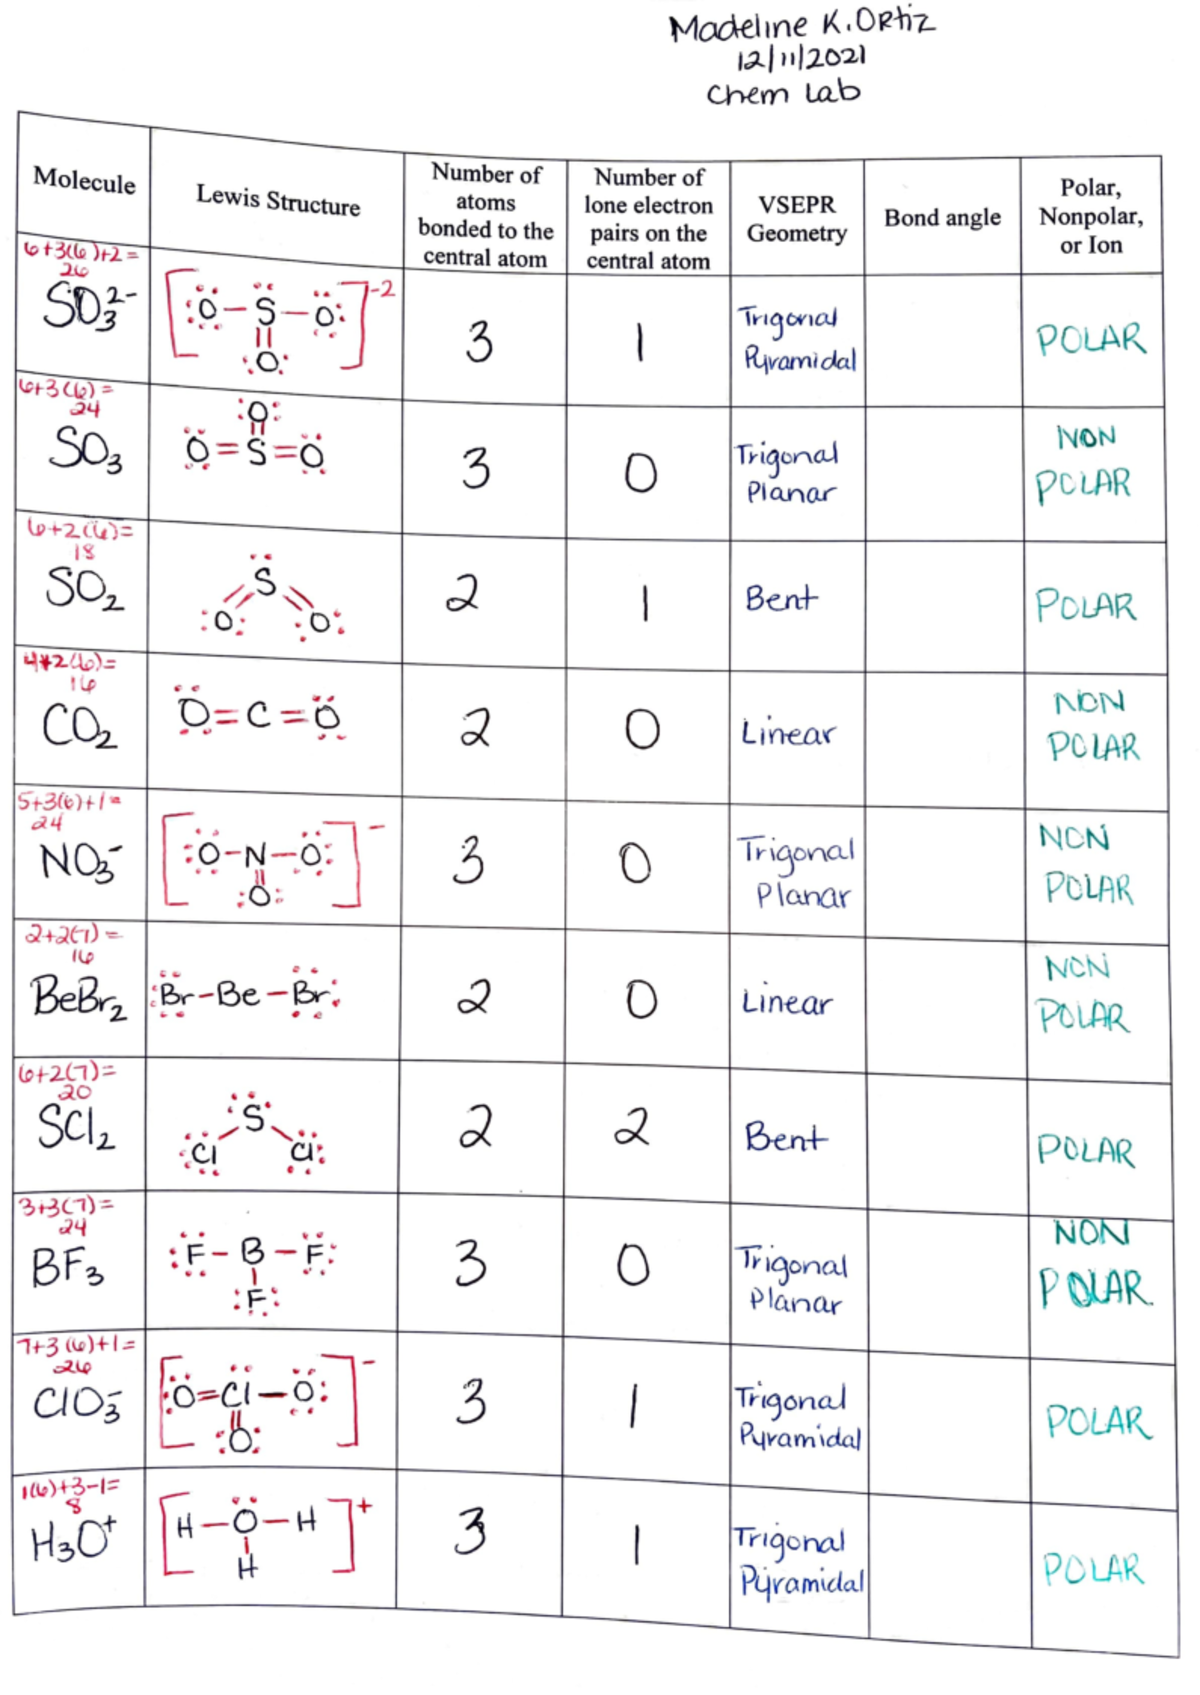 Madeline K. Ortiz
12/11/2021
Chem Lab
Molecule
Lewis Structure
Number of
atoms
bonded to the
central atom
Number of
lone electron
pairs on the
central atom
VSEPR
Geometry
Bond angle
Polar,
Nonpolar,
or Ion
6+3(6)+2=
26
SO₃²⁻
[:O–S–O:]⁻²
||
:O:
3
1
Trigonal
Pyramidal
POLAR
6+3(6)=
24
SO₃
:O:
||
O=S=O
3
0
Trigonal
Planar
NON
POLAR
6+2(6)=
18
SO₂
S
:O: :O:
2
1
Bent
POLAR
4+2(6)=
16
CO₂
O=C=O
2
0
Linear
NON
POLAR
5+3(6)+1=
24
NO₃⁻
[:O–N–O:]⁻
||
:O:
3
0
Trigonal
Planar
NON
POLAR
2+2(7)=
16
BeBr₂
:Br–Be–Br:
2
0
Linear
NON
POLAR
6+2(7)=
20
SCl₂
:S:
:Cl Cl:
2
2
Bent
POLAR
3+3(7)=
24
BF₃
:F–B–F:
|
:F:
3
0
Trigonal
Planar
NON
POLAR
7+3(6)+1=
26
ClO₃⁻
[:O=Cl–O:]⁻
||
:O:
3
1
Trigonal
Pyramidal
POLAR
1(6)+3-1=
8
H₃O⁺
[H–O–H]⁺
|
H
3
1
Trigonal
Pyramidal
POLAR